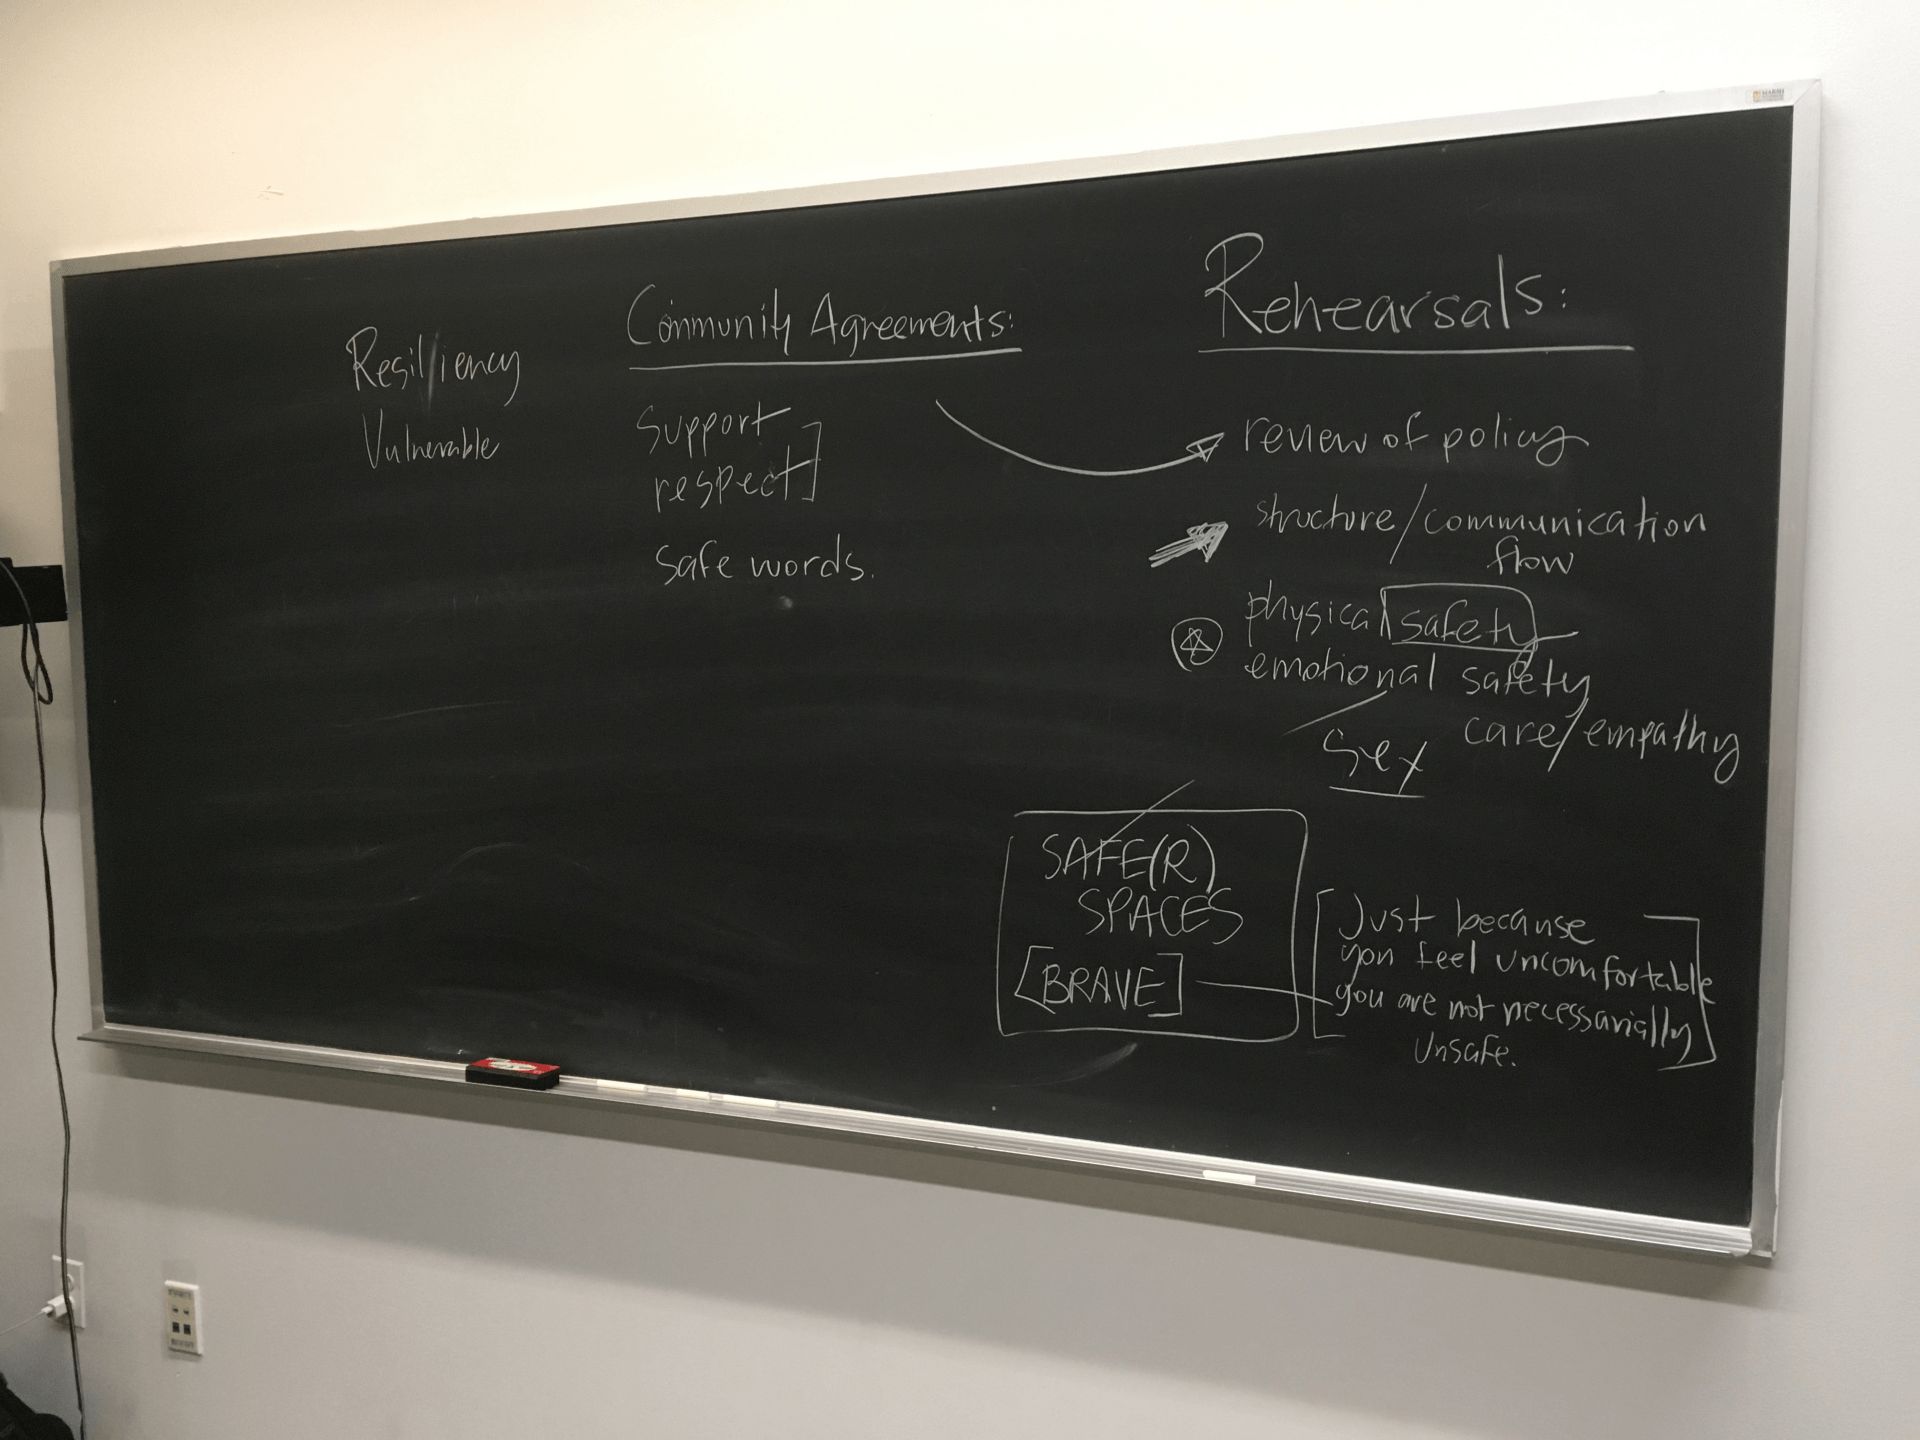 Resiliency
Vulnerable
Community Agreements:
support
respect
safe words.
Rehearsals:
review of policy
structure/communication
flow
physical safety
emotional safety
care/empathy
Sex
SAFE(R)
SPACES
[BRAVE]
[Just because
you feel uncomfortable
you are not necessarially
unsafe.]